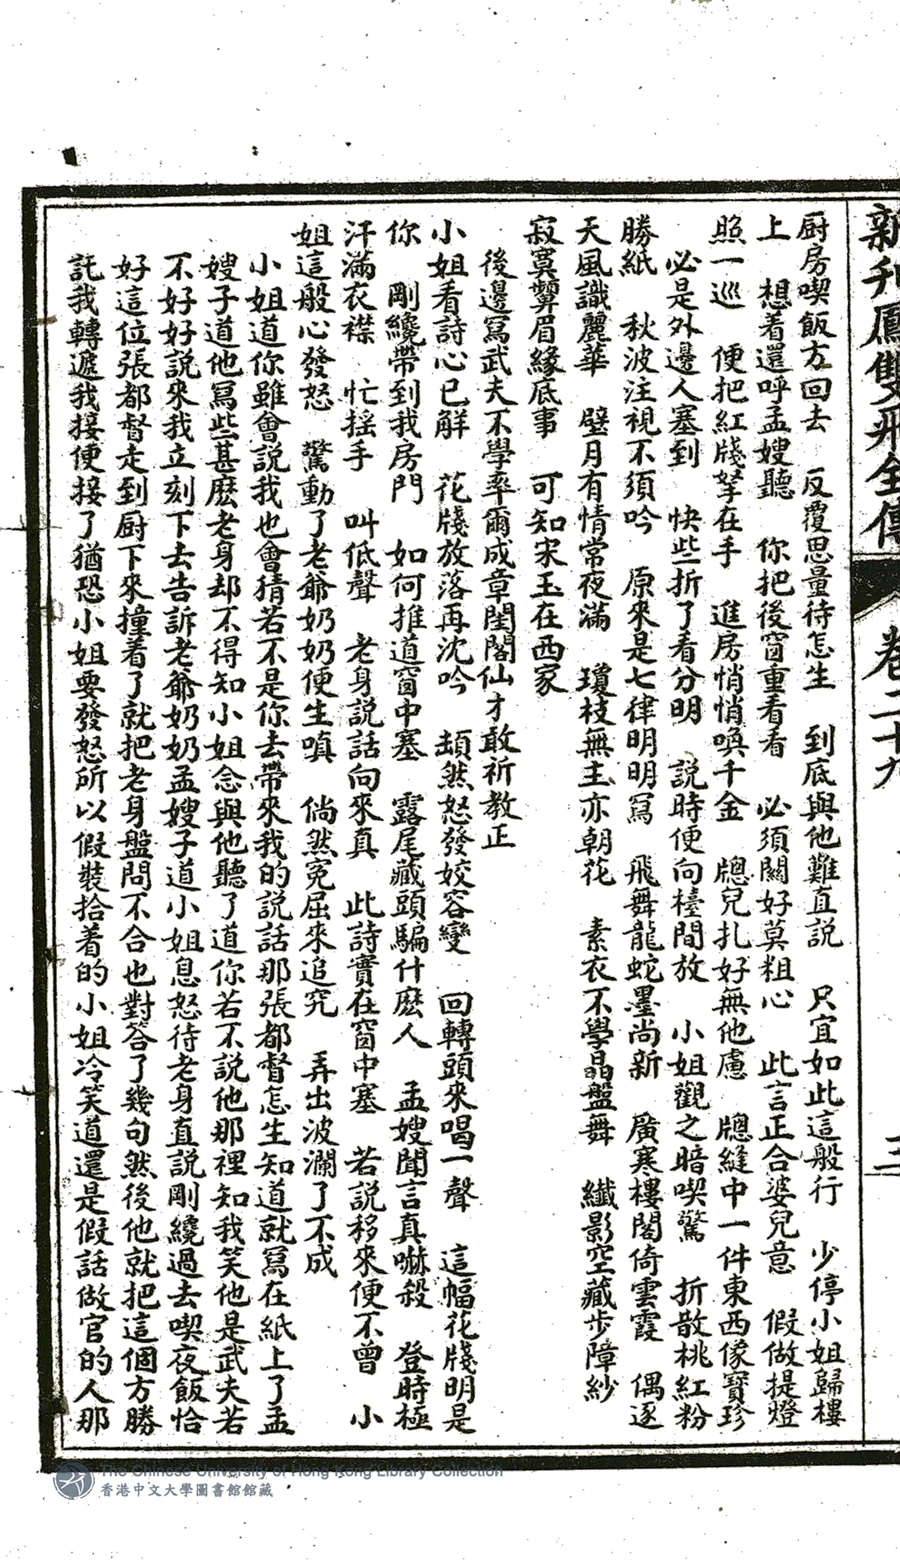 新刊鳳雙飛全傳 卷二十九 三
厨房喫飯方回去 反覆思量待怎生 到底與他難直說 只宜如此這般行 少停小姐歸樓
上 想着還呼孟嫂聽 你把後窗重看看 必須關好莫粗心 此言正合婆兒意 假做提燈
照一巡 便把紅牋拏在手 進房悄悄喚千金 牕兒扎好無他慮 牕縫中一件東西像寶珍
必是外邊人塞到 快些折了看分明 說時便向檯間放 小姐觀之暗喫驚 折散桃紅粉
勝紙 秋波注視不須吟 原來是七律明明寫 飛舞龍蛇墨尚新 廣寒樓閣倚雲霞 偶逐
天風識麗華 壁月有情常夜滿 瓊枝無主亦朝花 素衣不學晶盤舞 纖影空藏步障紗
寂寞顰眉緣底事 可知宋玉在西家
後邊寫武夫不學率爾成章閨閣仙才敢祈教正
小姐看詩心已解 花牋放落再沈吟 頳然怒發姣容變 回轉頭來喝一聲 這幅花牋明是
你 剛纔帶到我房門 如何推道窗中塞 露尾藏頭騙什麽人 孟嫂聞言真嚇殺 登時極
汗滿衣襟 忙摇手 叫低聲 老身説話向來真 此詩實在窗中塞 若説移來便不曾 小
姐這般心發怒 驚動了老爺奶奶便生嗔 倘然寃屈來追究 弄出波瀾了不成
小姐道你雖會説我也會猜若不是你去帶來我的説話那張都督怎生知道就寫在紙上了孟
嫂子道他寫些甚麽老身却不得知小姐念與他聽了道你若不説他那裡知我笑他是武夫若
不好好説來我立刻下去告訴老爺奶奶孟嫂子道小姐息怒待老身直説剛纔過去喫夜飯恰
好這位張都督走到厨下來撞着了就把老身盤問不合也對答了幾句然後他就把這個方勝
託我轉遞我接便接了猶恐小姐要發怒所以假裝拾着的小姐冷笑道還是假話做官的人那
The Chinese University of Hong Kong Library Collection
香港中文大學圖書館館藏